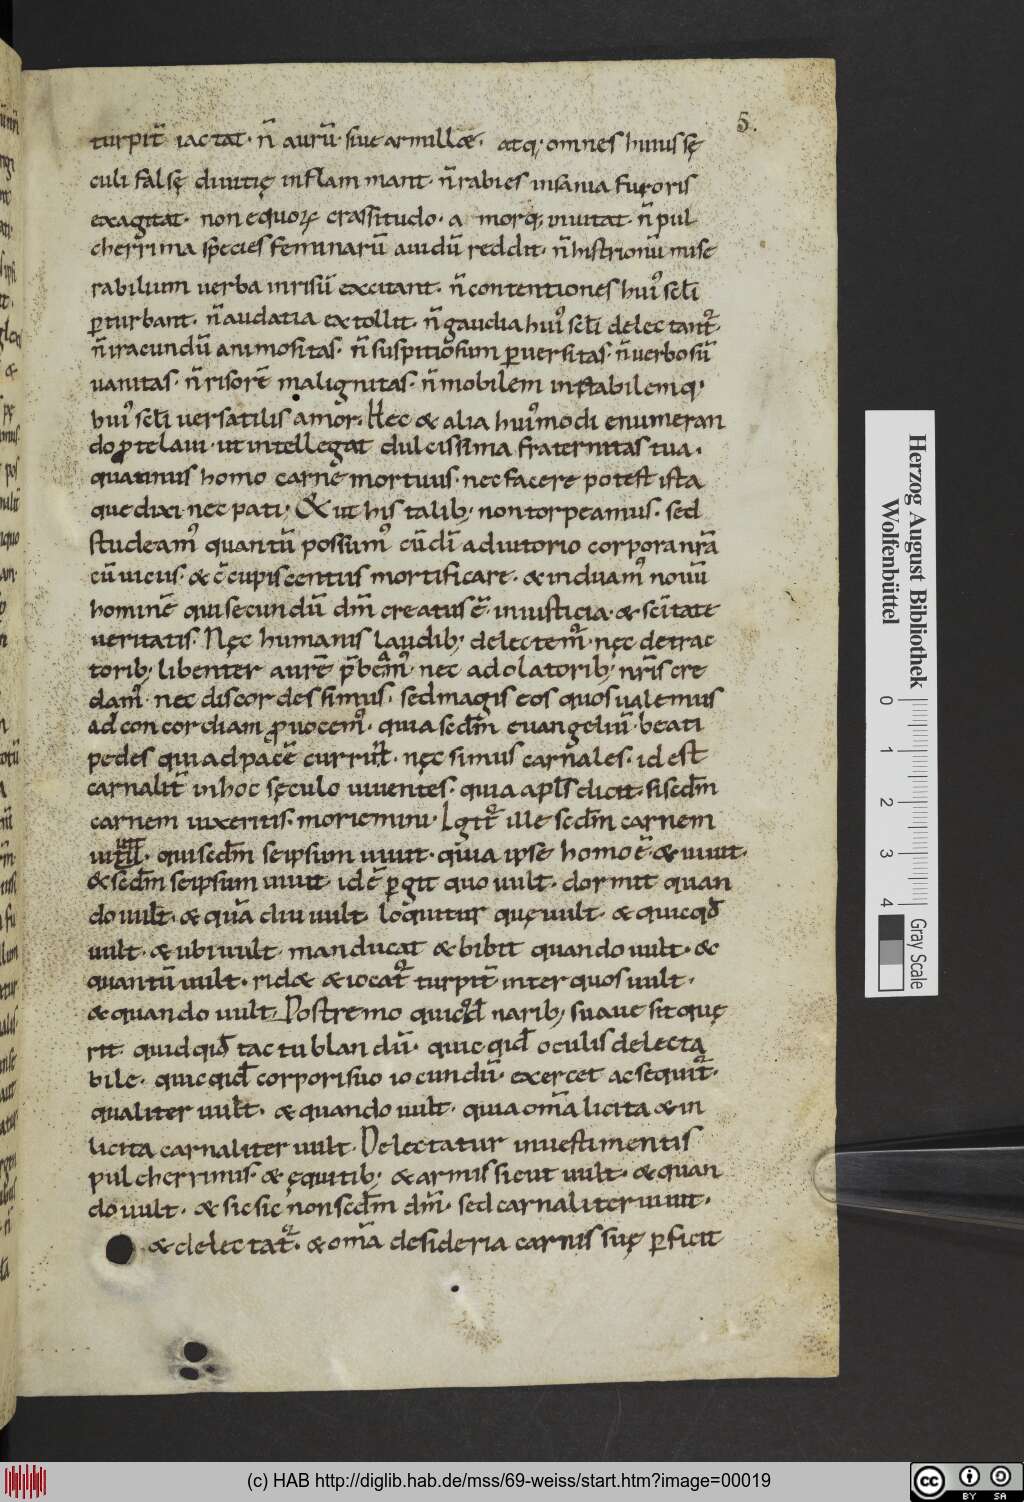 5.
turpit̄ iactat· n̄ aurū· siue armillæ· atq; omnes huius sę
culi falsę diuitię inflammant· n̄ rabies insania furoris
exagitat· non equoꝝ crassitudo· a morq; inuitat· n̄ pul
cherrima species feminarū auidū reddit· n̄ histrionū mise
rabilium uerba in risū excitant· n̄ contentiones huiꝰ scl̄i
ꝑturbant· n̄ audatia extollit· n̄ gaudia huiꝰ scl̄i delectant᷑·
n̄ iracundū animositas· n̄ suspitiosum ꝑuersitas· n̄ uerbosū
uanitas· n̄ risorē malignitas· n̄ mobilem instabilemq;
huiꝰ scl̄i uersatilis amor· Hec & alia huiꝰmodi enumeran
do ꝓtelaui· ut intellegat dulcissima fraternitas tua·
quatinus homo carne mortuus· nec facere potest ista
que dixi nec pati· & ut his talib; non torpeamus· sed
studeamꝰ quantū possumꝰ cū dī adiutorio corpora nr̄a
cū uiciis· & c̄cupiscentiis mortificare· & induamꝰ nouū
hominē qui secundū dm̄ creatus ē in iusticia· & sc̄itate
ueritatis. Nęc humanis laudib; delectem᷑· nęc detrac
torib; libenter aurē p̄beamꝰ· nec adolatorib; nr̄is cre
damꝰ· nec discordes simus· sed magis eos quos ualemus
ad concordiam ꝓuocemꝰ· quia secdm̄ euangeliū· beati
pedes qui ad pacē currunt· nęc simus carnales· id est
carnalit̄ in hoc sęculo uiuentes· quia apl̄s dicit· si secdm̄
carnem uixeritis· moriemini· Igit᷑ ille secdm̄ carnem
uiuit· qui secdm̄ seipsum uiuit· quia ipse homo ē· & uiuit·
& secdm̄ seipsum uiuit· id ē ꝑgit quo uult· dormit quan
do uult· & quā diu uult· loquitur quę uult· & quicqd̄
uult· & ubi uult· manducat & bibit quando uult· &
quantū uult· ridæ & iocat᷑ turpit̄ inter quos uult·
& quando uult· Postremo quicqd̄ narib; suaue sit quę
rit· quidqid̄ tactu blandū· quicqid̄ oculis delecta
bile· quicqid̄ corpori suo iocundū· exercet ac sequit᷑·
qualiter uult· & quando uult· quia om̄a licita & in
licita carnaliter uult· Delectatur in uestimentis
pulcherrimis· & ęquitib; & armis sicut uult· & quan
do uult· & sic sic non secdm̄ dm̄· sed carnaliter uiuit·
& delectat᷑· & om̄a desideria carnis suę ꝑficit
Herzog August Bibliothek
Wolfenbüttel
0 1 2 3 4
Gray Scale
(c) HAB http://diglib.hab.de/mss/69-weiss/start.htm?image=00019
cc BY SA